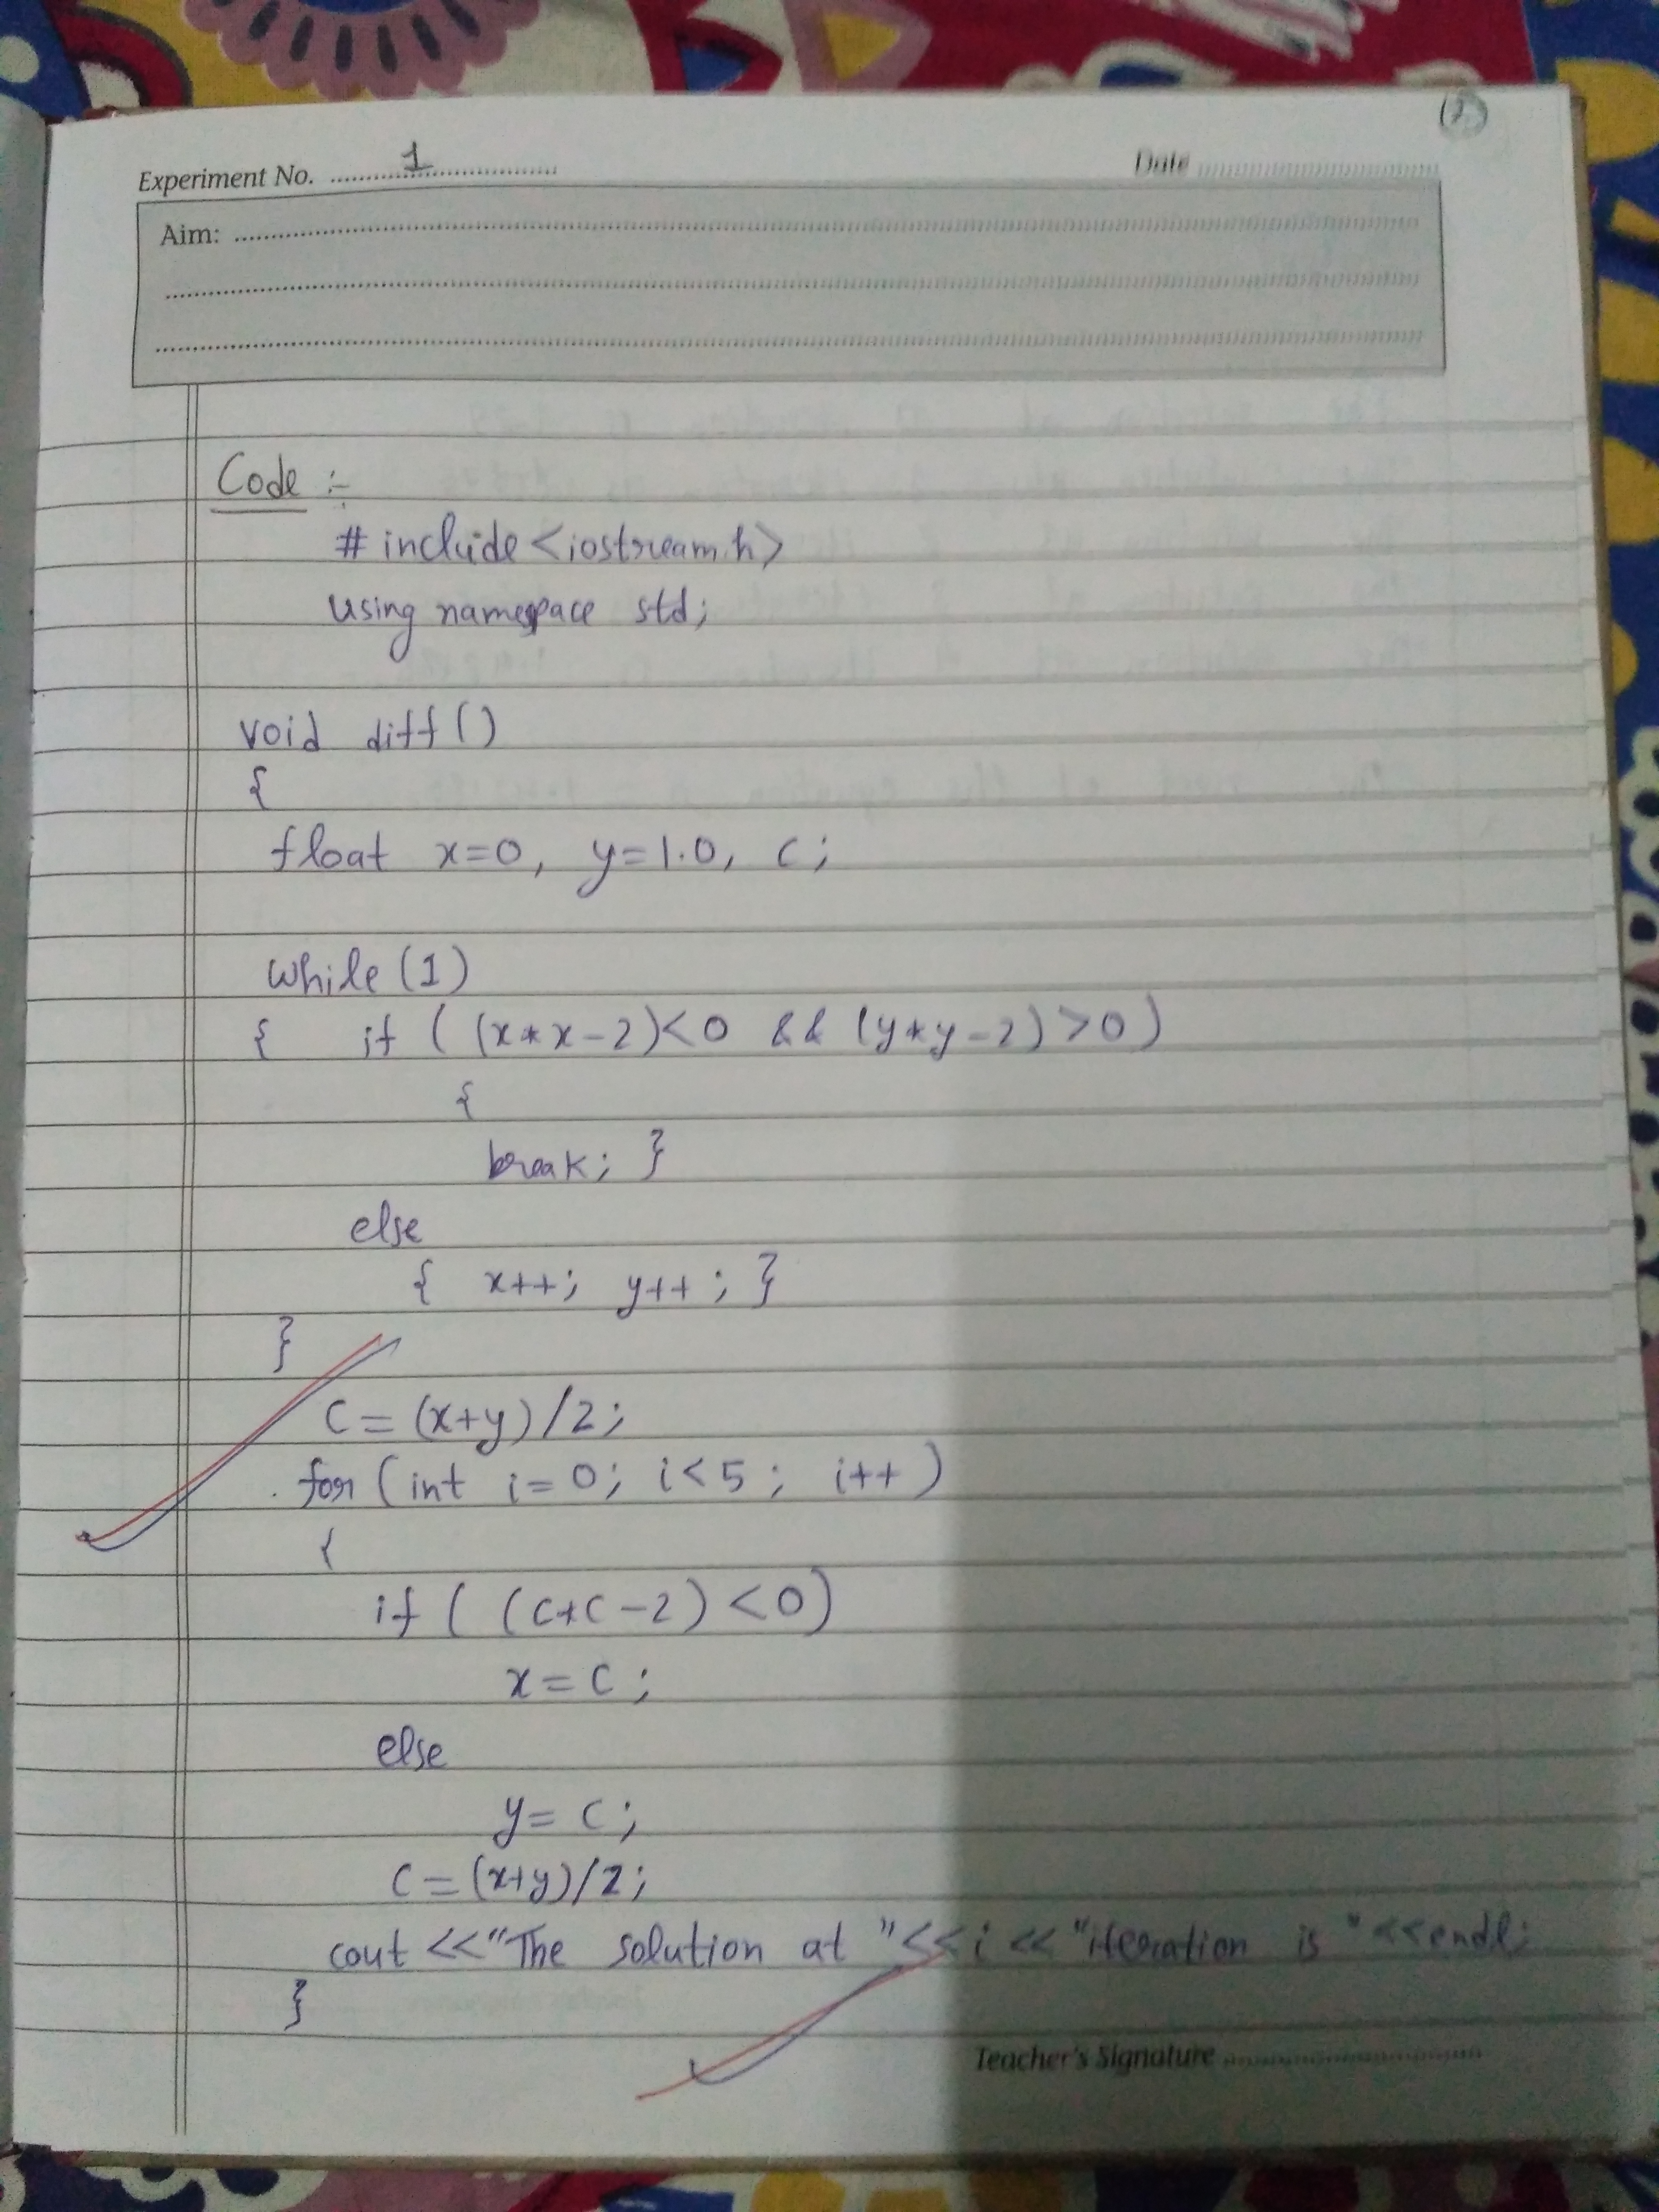 (2)
Experiment No. 1 Date
Aim:
Code :-
# include <iostream.h>
using namespace std;
void diff()
{
float x=0, y=1.0, c;
while (1)
{ if ( (x*x-2)<0 && (y*y-2)>0)
{
break; }
else
{ x++; y++; }
}
C = (x+y)/2;
for (int i=0; i<5; i++)
{
if ( (c*c-2) <0)
x = c;
else
y = c;
c = (x+y)/2;
cout <<"The solution at "<<i<< "iteration is "<<endl;
}
Teacher's Signature